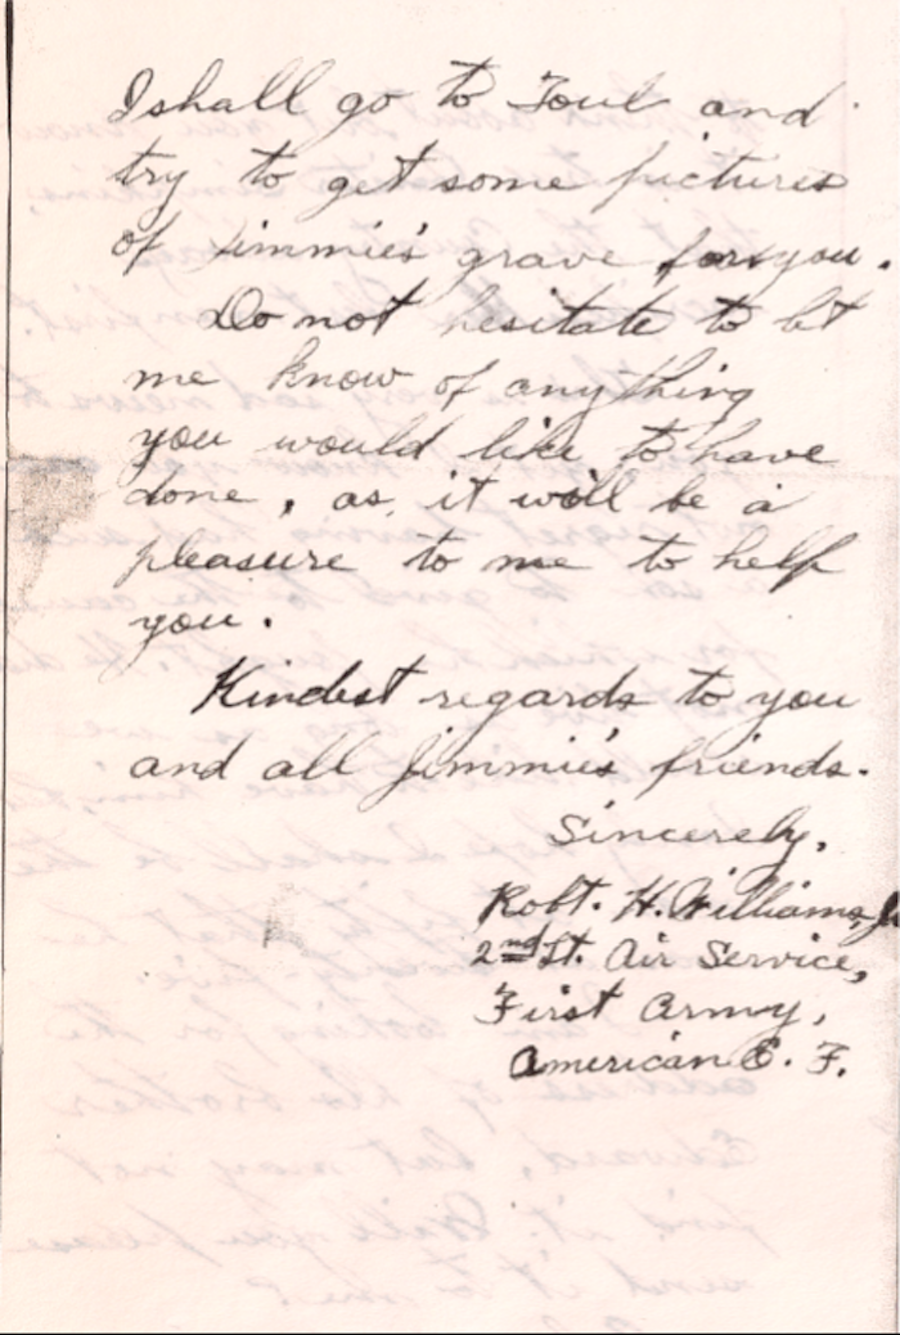 I shall go to Toul and
try to get some pictures
of Jimmie's grave for you.
Do not hesitate to let
me know of anything
you would like to have
done, as it will be a
pleasure to me to help
you.
Kindest regards to you
and all Jimmie's friends.
Sincerely,
Robt. H. Williams, Jr
2nd Lt. Air Service,
First Army,
American E. F.